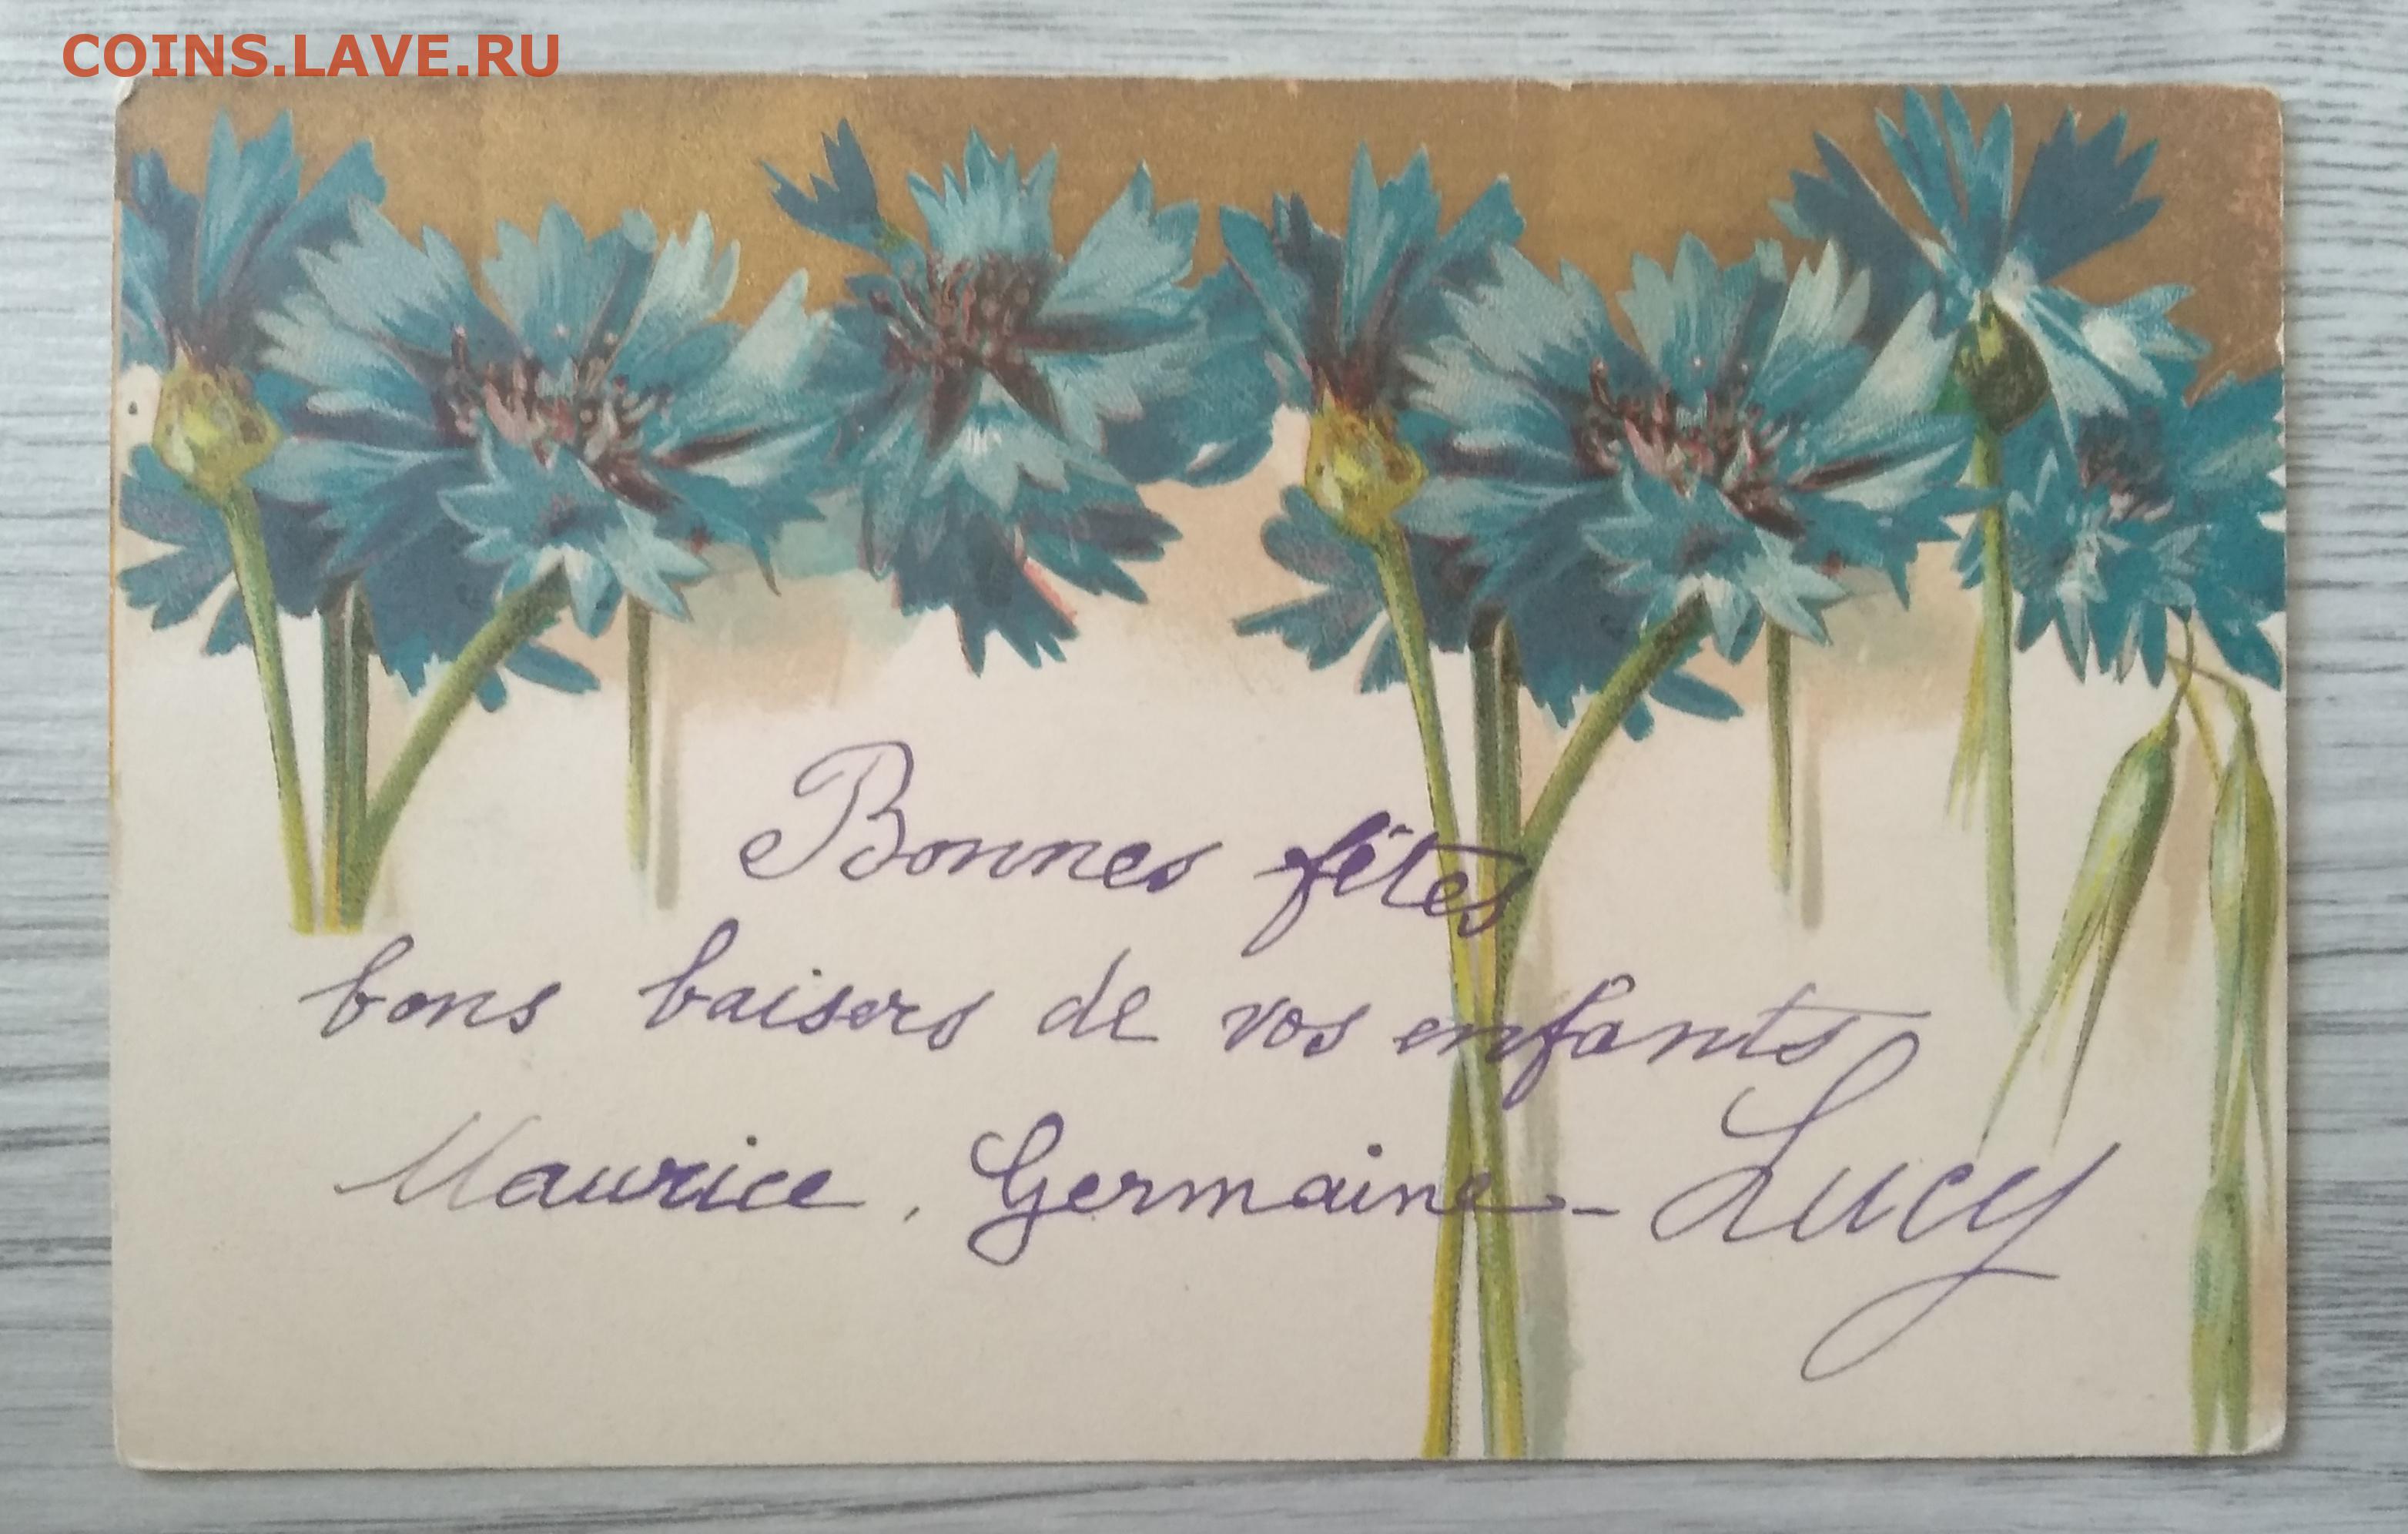 COINS.LAVE.RU
Bonnes fêtes
bons baisers de vos enfants
Maurice, Germaine - Lucy